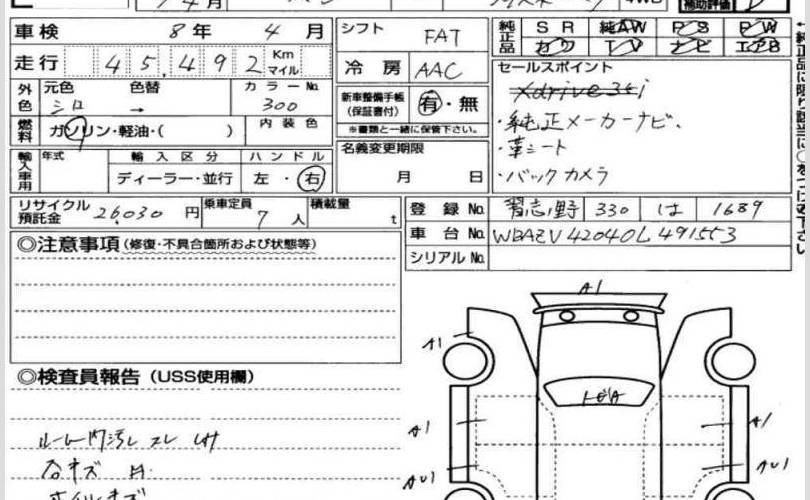 車検 8年 4月
シフト FAT
純正品 SR 純AW PS PW
カワ TV ナビ エアB
補助評価 D
走行 45,492 Km マイル
冷房 AAC
セールスポイント
Xdrive35i
・純正メーカーナビ、
・革シート
・バックカメラ
外色 元色 シロ 色替 → カラーNo. 300
新車整備手帳(保証書付) 有・無
※書類と一緒に保管下さい。
燃料 ガソリン・軽油・( ) 内装色
名義変更期限 月 日
輸入車用 年式 輸入区分 ハンドル
ディーラー・並行 左・右
リサイクル預託金 26,030円 乗車定員 7人 積載量 t
登録No. 習志野 330 は 1689
車台No. WBAZV42040L491553
シリアルNo.
◎注意事項(修復・不具合箇所および状態等)
◎検査員報告(USS使用欄)
ルーム内汚レ スレ
A1
A1
トビA
A1
A1
AU1
AU1